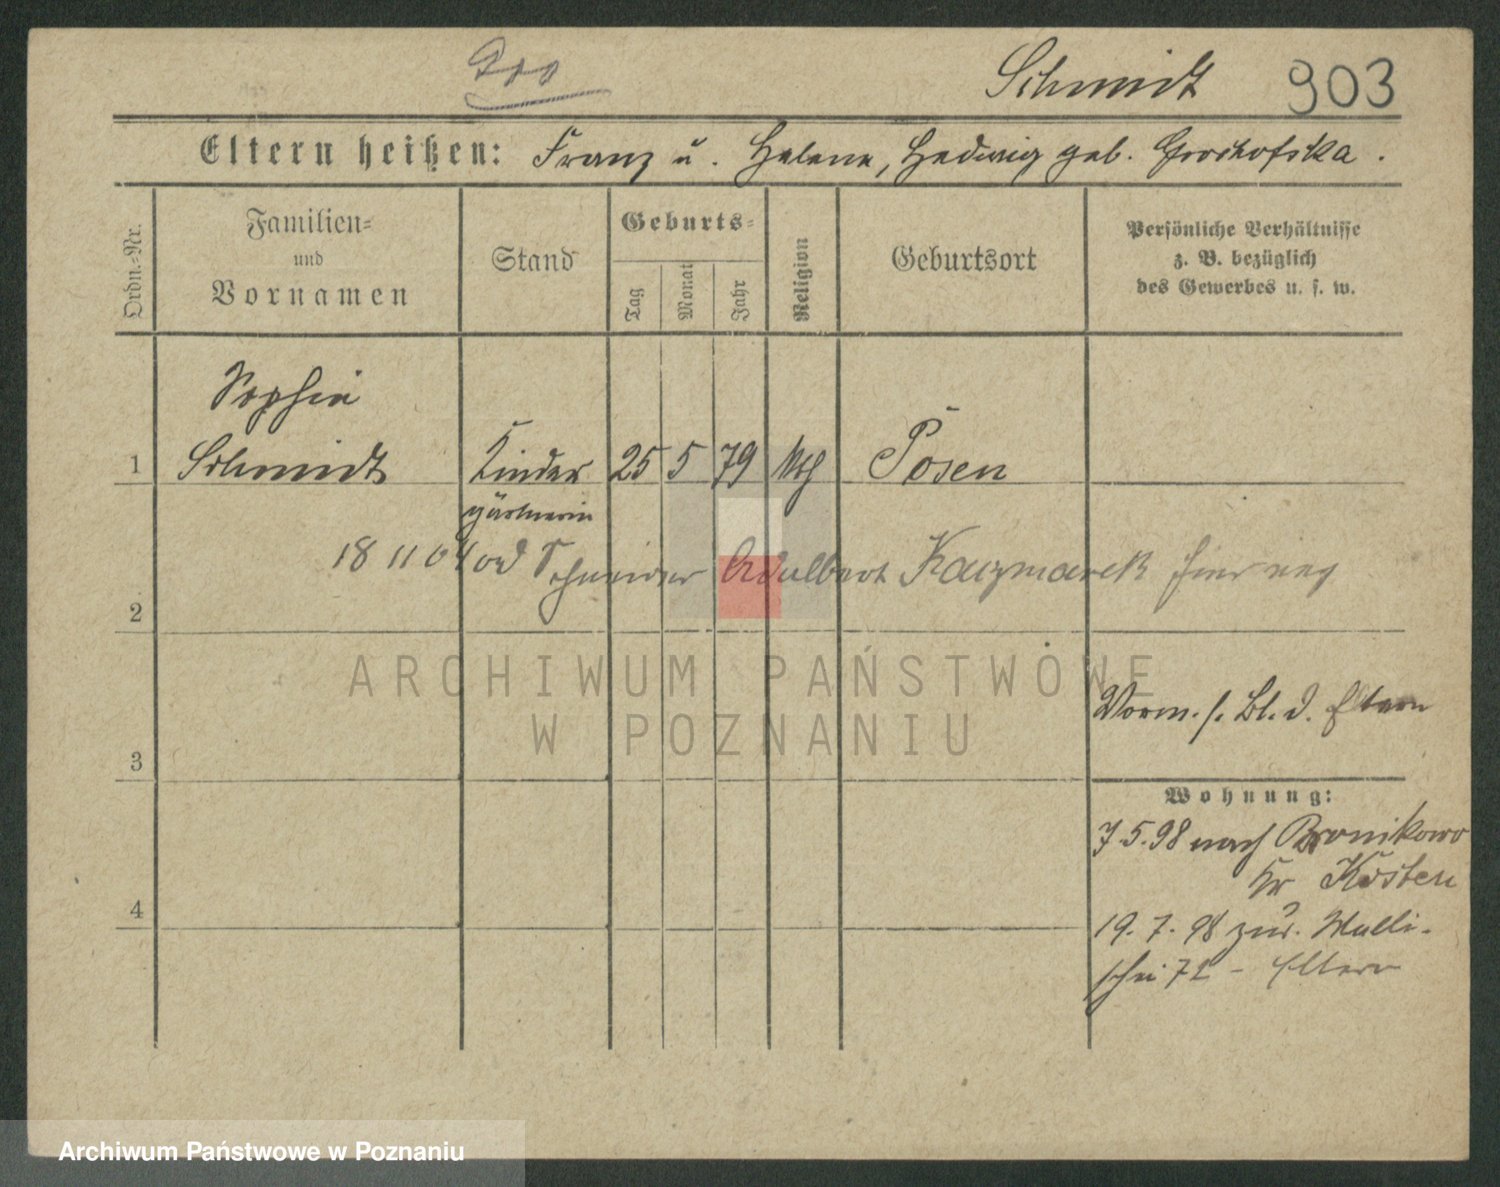 Schmidt 903
Eltern heißen: Franz u. Helene, Hedwig geb. Grochofska.
Ordn.-Nr.
Familien-
und
Vornamen
Stand
Geburts-
Tag
Monat
Jahr
Religion
Geburtsort
Persönliche Verhältnisse
z. B. bezüglich
des Gewerbes u. s. w.
Sophie
1 Schmidt Kinder 25 5 79 Posen
gärtnerin
18 11 04 Schneider Adalbert Kaczmarek
2
ARCHIWUM PAŃSTWOWE
W POZNANIU
Vorm. s. Bl. d. Eltern
3
Wohnung:
7.5.98 nach Bronikowo
Kr Kosten
4
19. 7. 98 zur. Walli-
schei 72 - Eltern
Archiwum Państwowe w Poznaniu